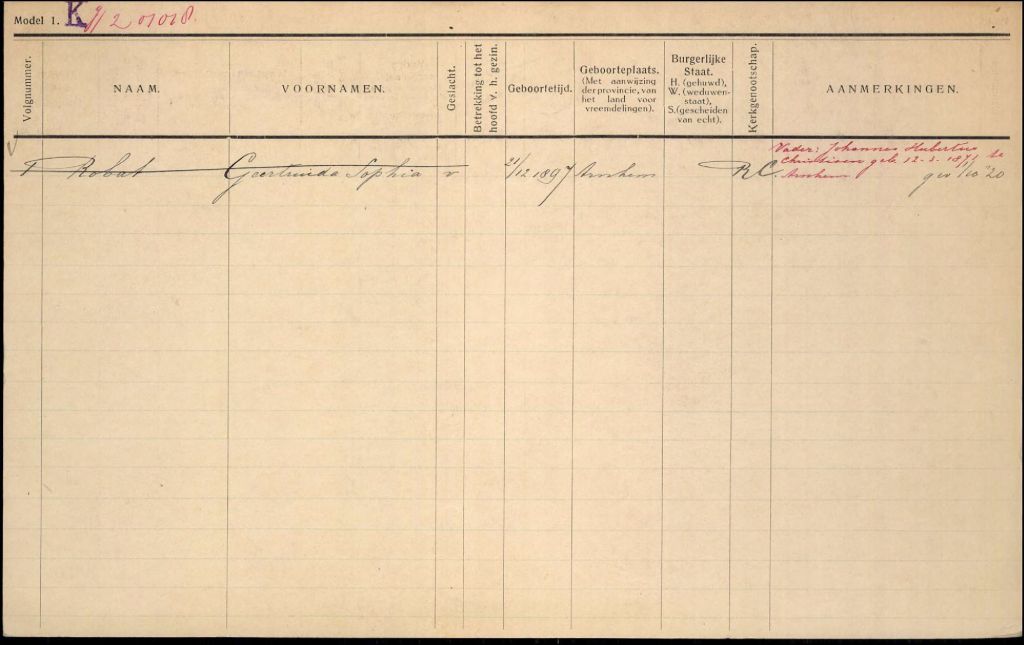 Model 1. K
Volgnummer.
NAAM.
VOORNAMEN.
Geslacht.
Betrekking tot het
hoofd v. h. gezin.
Geboortetijd.
Geboorteplaats.
(Met aanwijzing
der provincie, van
het land voor
vreemdelingen).
Burgerlijke
Staat.
H. (gehuwd),
W. (weduwen-
staat),
S. (gescheiden
van echt).
Kerkgenootschap.
AANMERKINGEN.
1 Robat Geertruida Sophia v 21/12 1897 Arnhem R.C.
Vader: Johannes Hubertus
Christiaan geb 12-2-1871 te
Arnhem